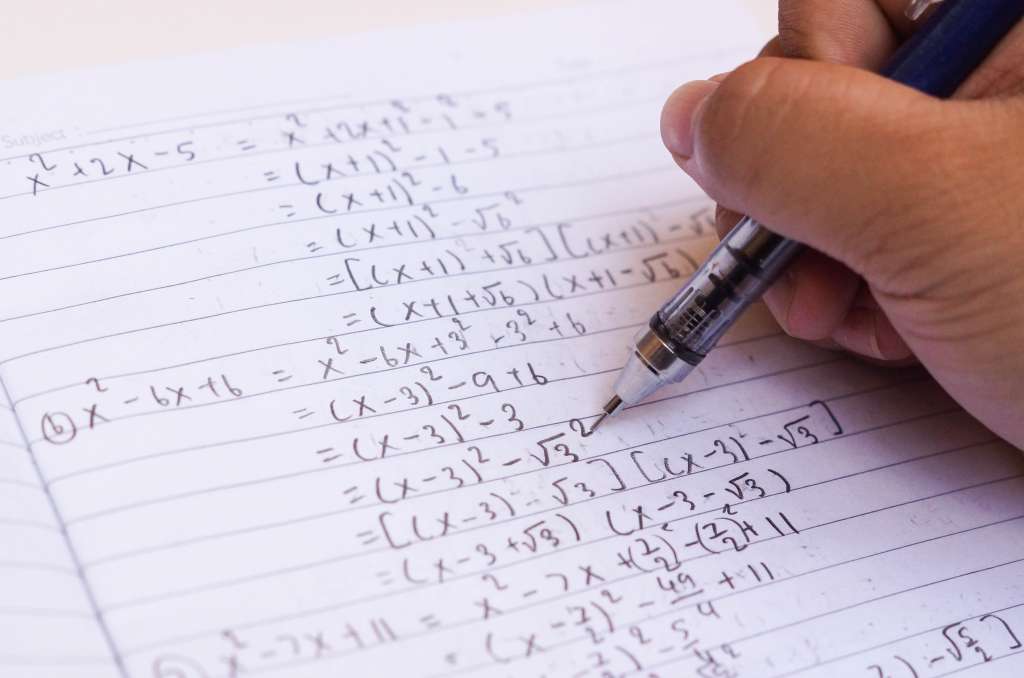 Subject :
x² + 2x - 5 = x² + 2x + 1² - 1² - 5
= (x+1)² - 1 - 5
= (x+1)² - 6
= (x+1)² - √6²
= [(x+1) + √6] [(x+1) - √
= (x+1+√6) (x+1-√6)
(b) x² - 6x + 6 = x² - 6x + 3² - 3² + 6
= (x-3)² - 9 + 6
= (x-3)² - 3
= (x-3)² - √3²
= [(x-3) - √3] [(x-3) - √3]
= (x-3+√3) (x-3-√3)
x² - 7x + 11 = x² - 7x + (7/2)² - (7/2)² + 11
(x - 7/2)² - 49/4 + 11
7/2)² - 5/4
) - √5/2]